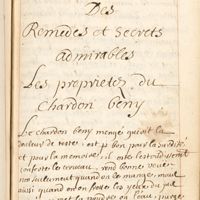 Des
Remedes et Secrets
admirables
Les proprietez du
Chardon beny
Le chardon beny mengé guerit la
douleur de teste, est bon pour la surdité
et pour la memoire, il
conforte le cerveau, rend bonne veue
non seulement quand on le mange, mais
aussi quand on en lave les yeux du jus
la poudre en l'eau,